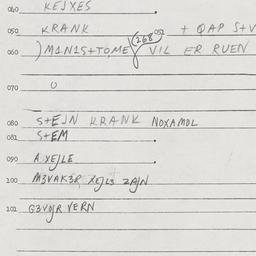 040 KEJXES
050 KRANK 052 + QAP S+V
060 )M1N1S+TOME 268 VIL ER RUEN
070 O
080 S+EJN KRANK NOXAMOL
081 S+EM
090 A XEJLE
100 M3VAK3R XEJL3 ZAJN
101 G3VOJR VERN